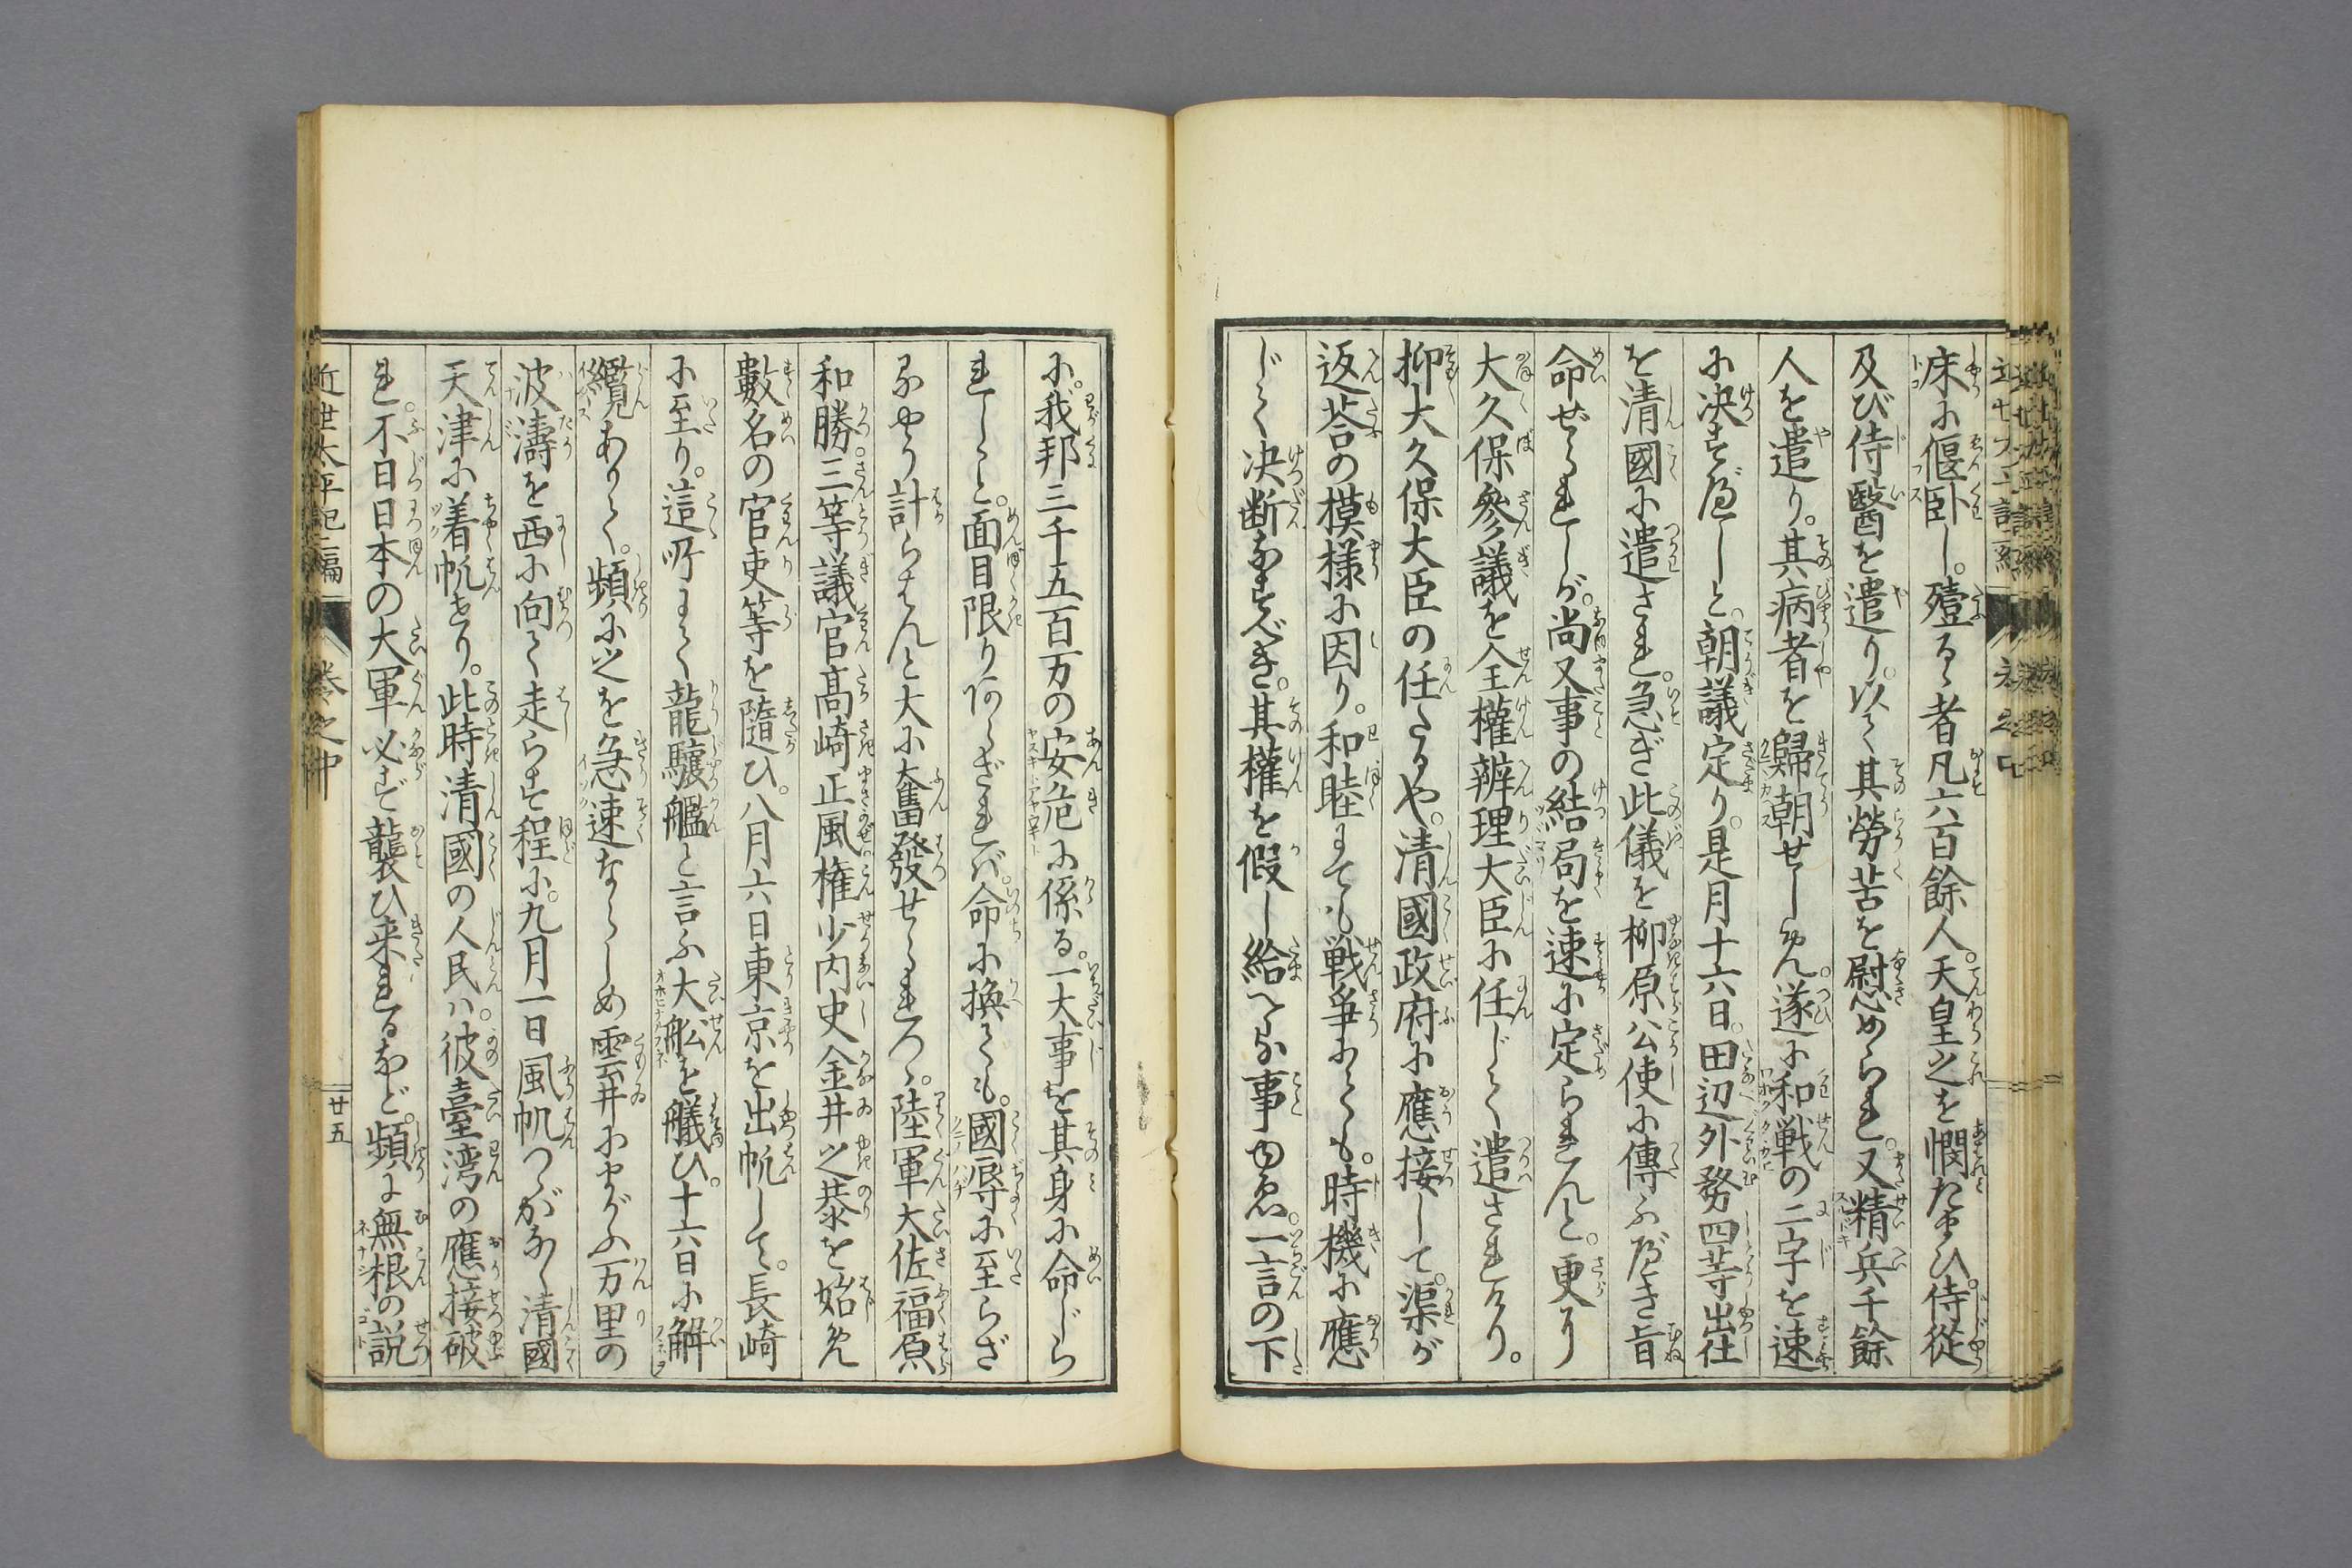 床に偃臥し。殪るゝ者凡六百餘人。天皇之を憫たまひ。侍從
及び侍醫を遣り。以て其勞苦を慰められ。又精兵千餘
人を遣り。其病者を歸朝せしめん。遂に和戦の二字を速
に决すべしと。朝議定り。是月十六日。田辺外務四等出仕
を清國に遣され。急ぎ此儀を柳原公使に傳ふべき旨
命ぜられしが。尚又事の結局を速に定られんと。更に
大久保參議を全權辨理大臣に任じて遣されたり。
抑大久保大臣の任たるや。清國政府に應接して。渠が
返荅の模様に因り。和睦にても戦爭にても。時機に應
じて决断なすべき。其權を假し給へる事ゆゑ。一言の下
に。我邦三千五百万の安危に係る。一大事を其身に命じら
れしと。面目限りあらざれば。命に換ても。國辱に至らざ
るやう計らはんと大に奮發せられつゝ。陸軍大佐福原
和勝。三等議官髙崎正風権少内史金井之恭を始め
數名の官吏等を隨ひ。八月六日東京を出帆して。長崎
に至り。這所にて龍驤艦と言ふ大舩を艤ひ。十六日に解
纜ありて。頻に之を急速ならしめ雲井にまがふ万里の
波濤を西に向て走らす程に。九月一日風帆つゝがなく清國
天津に着帆せり。此時清國の人民ハ。彼臺湾の應接破
れ。不日日本の大軍必ず襲ひ来れるなど。頻に無根の説
近世太平記二編
巻之中
廿五